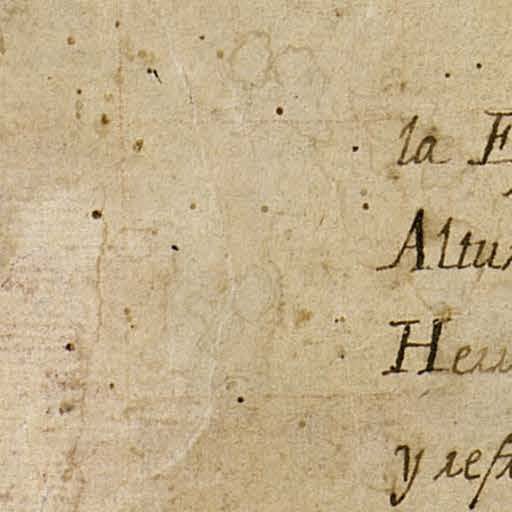 la E
Altu
Heu
y ref